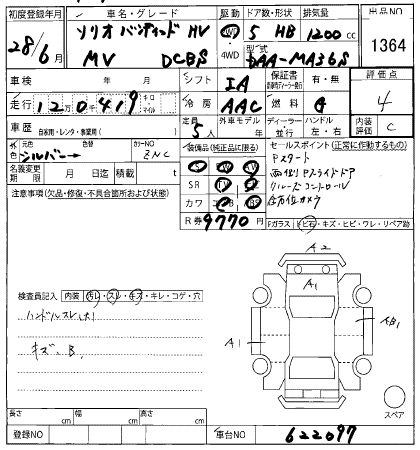 初度登録年月 車名・グレード 駆動 ドア数・形状 排気量 出品NO
28/6月 ソリオ バンディット HV 2WD 5 HB 1200cc 1364
MV DCBS 4WD 型式 DAA-MA36S
車検 年 月 シフト IA 保証書 有・無 評価点
走行 120419 キロ マイル 冷房 AAC 燃料 G 4
車歴 自家用・レンタ・事業用( ) 定員 5人 外車モデル年 ディーラー・並行 ハンドル 左・右 内装評価 C
外色 元色 シルバー 色替 カラーNO ZNC 装備品(純正品に限る) セールスポイント(正常に作動するもの)
名義変更期限 月 日迄 積載 t SR カワ Pスタート
注意事項(欠品・修復・不具合箇所および状態) 両側Pスライドドア
クルーズコントロール
全方位カメラ
R券 9770円 Fガラス トビ石・キズ・ヒビ・ワレ・リペア跡
A2
A1
検査員記入 内装 汚レ・スレ・キズ・キレ・コゲ・穴
ハンドルスレ(大)
A1 AB1
キズ、B、
スペア
長さ cm 幅 cm 高さ cm
登録NO 車台NO 622097